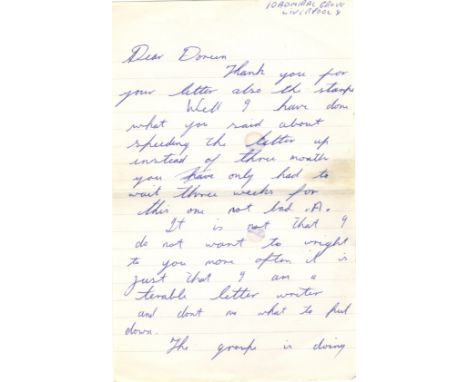 10 ADMIRAL GROVE
LIVERPOOL 8
Dear Doreen
Thank you for
your letter also the stamps
Well I have done
what you said about
speeding the letter up
instead of three months
you have only had to
wait three weeks for
this one not bad .A.
It is not that I
do not want to wright
to you more often it is
just that I am a
terable letter writer
and dont no what to put
down.
The group is doing